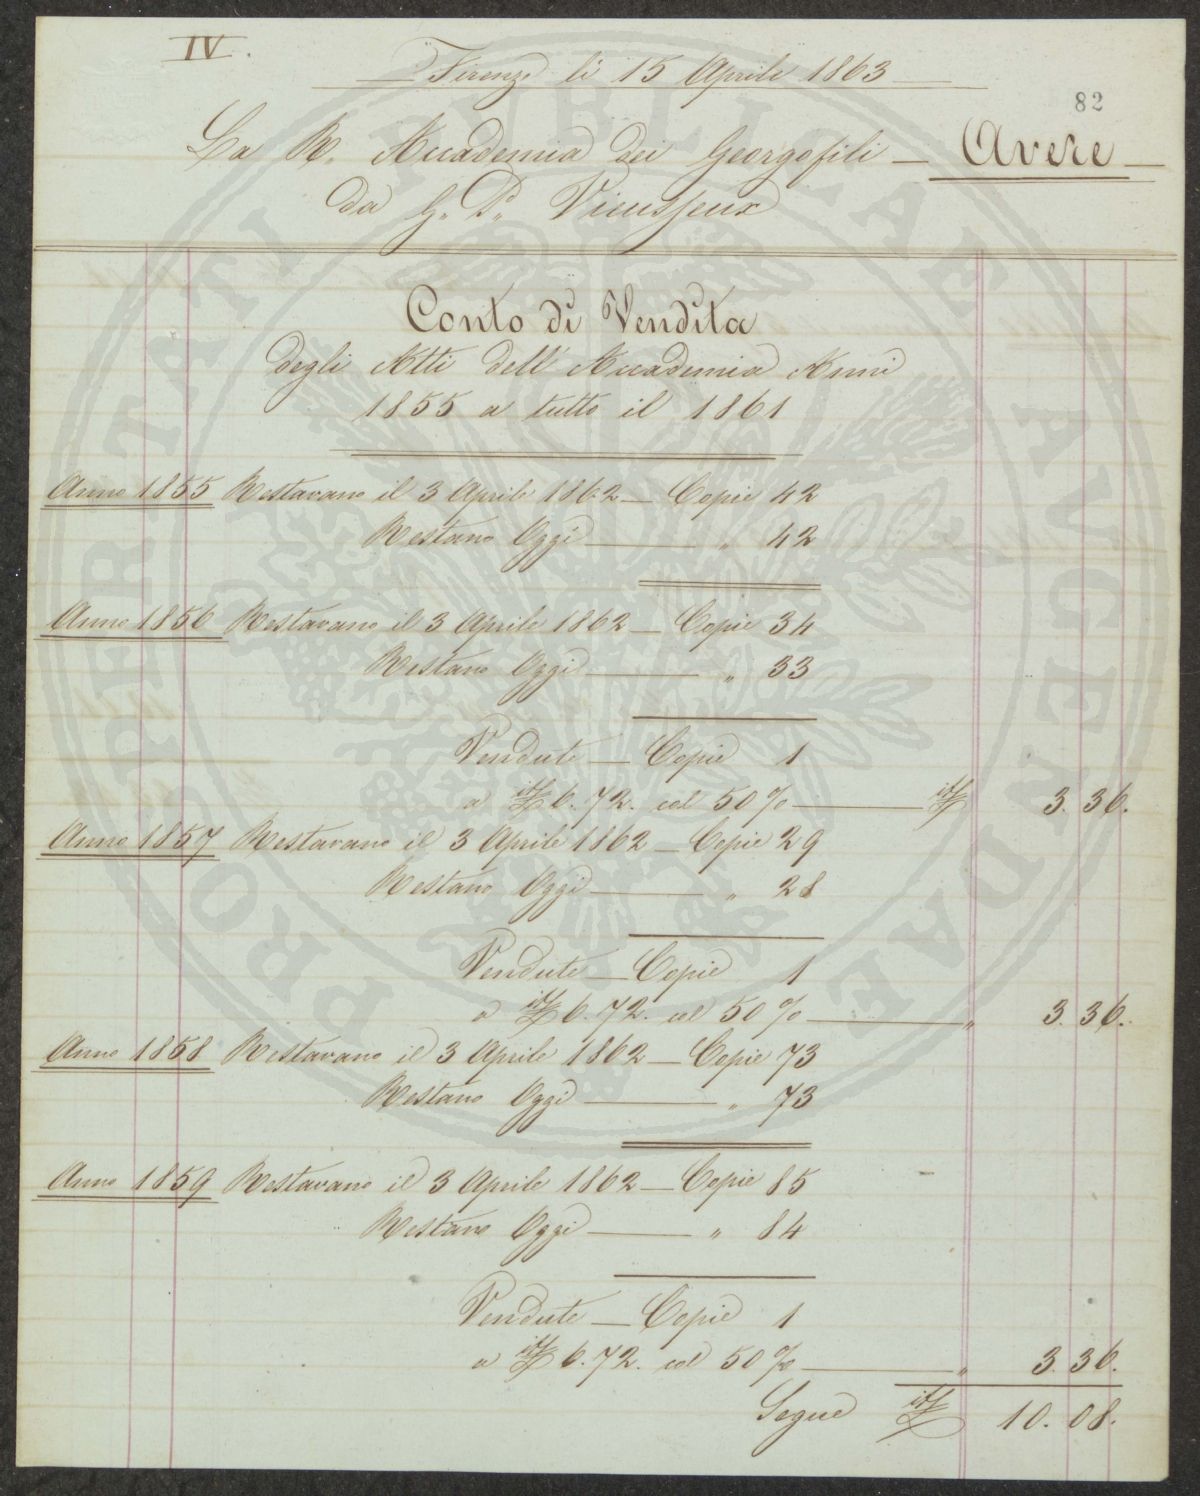 IV.
Firenze li 15 Aprile 1863
82
La R. Accademia dei Georgofili — Avere —
da G. P. Vieusseux
Conto di Vendita
degli Atti dell' Accademia Anni
1855 a tutto il 1861
Anno 1855 Restavano il 3 Aprile 1862 — Copie 42
Restano Oggi — „ 42
Anno 1856 Restavano il 3 Aprile 1862 — Copie 34
Restano Oggi — „ 33
Vendute — Copie 1
a it£ 6.72. col 50% — it£ 3.36.
Anno 1857 Restavano il 3 Aprile 1862 — Copie 29
Restano Oggi — „ 28
Vendute — Copie 1
a it£ 6.72. col 50% — „ 3.36.
Anno 1858 Restavano il 3 Aprile 1862 — Copie 73
Restano Oggi — „ 73
Anno 1859 Restavano il 3 Aprile 1862 — Copie 85
Restano Oggi — „ 84
Vendute — Copie 1
a it£ 6.72. col 50% — „ 3.36.
Segue it£ 10.08.
PUBLICAE AUGENDAE PROPERITATI